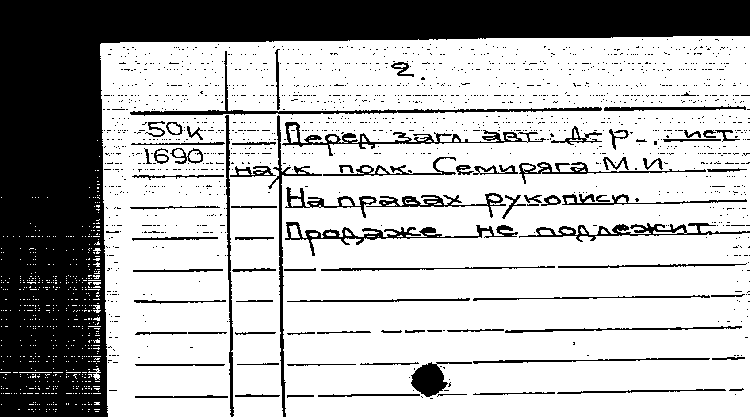 2.
50к Перед загл. авт.: Д-р ист.
1690 наук полк. Семиряга М.И.
На правах рукописи.
Продаже не подлежит.